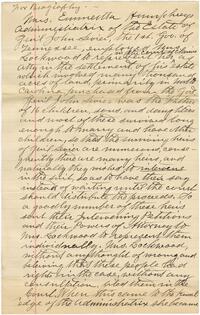 for Biography --
Mrs. Emmretta Humphreys
Administratrix of the Estate of
Gen'l John Sevier, the 1st Gov. of
Tennessee, employed Mrs.
Lockwood to represent her, as
atty in the settlement of the Estate
which involved many thousand
acres of land, primarily in North
Carolina, purchased from the Govt.
Gen'l John Sevier was the Father
of children, sons and daughters
and most of these survived long
enough to marry and have
children, so that the surviving heirs
of Gen'l Sevier are numerous, conse-
quently there are many heirs, and
naturally they wished to intervene
in the suit, so as to have their say
instead of waiting until the court
should distribute the proceeds. So
a goodly number of these heirs
sent their Intervening Petitions
and their Powers of Attorney to
Mrs. Lockwood to represent them
individually. Mrs. Lockwood,
without any thought of wrong and
believing that these people had
rights in the case, without any
consultation, filed them in the
Court. When this came to the knowl-
edge of the Administratrix she became